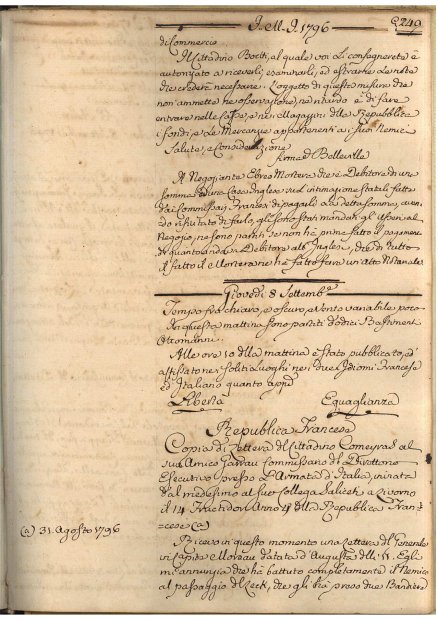 I.M.I. 1796
249
di Commercio
Il Cittadino Boccti, al quale voi li consegnerete è
autorizato a riceverli, esaminarli, ed estrarne le note
che crederà necessarie. L'oggetto di queste misure che
non ammette che osservazione, ne ritardo è di fare
entrare nelle Casse, e nei Magazzini della Repubblica
i fondi, e le Mercanzie appartenenti a' suoi Nemici
Salute, e Considerazione
firmato Belleville
Al Negoziante Ebreo Mortera che è Debitore di una
somma ad una Casa Inglese sud intimazione statali fatta
dai Commissari Francesi di pagare a Loro detta somma, aven-
do rifiutato di farlo, gli sono stati mandati gli Usseri al
Negozio, ne sono partiti se non hà prima fatto il pagamen-
di quanto andava Debitore alli Inglesi, che di tutto
il fatto il Mortera ne hà fatto fare un'Atto Notariale
Giovedì 8 Settembre
Tempo frà chiaro, e oscuro, e Vento variabile poco
In questa mattina sono partiti dodici Bastimenti
Ottomanni
Alle ore 10 della mattina è stato pubblicato, ed
affissato nei soliti Luoghi nei due Idiomi Francese
ed Italiano quanto appo
Libertà Eguaglianza
Republica Francese
Copia di Lettera del Cittadino Comeyras al
suo Amico Garrau Commissario del Direttorio
Esecutivo presso L'Armata d'Italia, inviata
dal medesimo al suo Collega Saliceti a Livorno
il 14 Fructidor Anno 4 della Repubblica Fran-
cese (a)
(a) 31. Agosto 1796
Ricevo in questo momento una Lettera del Generale
in Capite Moreau datata d'Augusta delli 11. Egli
mi annunzia che hà battuto completamente il Nemico
al passaggio del Leck, che gli hà preso due Bandiere